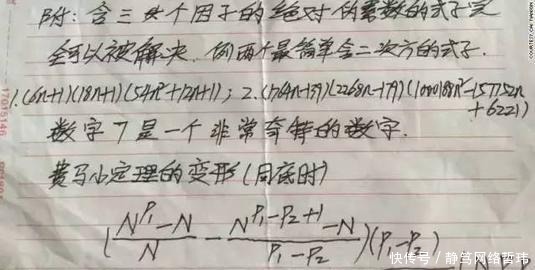 附:含三 个因子的绝对伪素数的式子完
全可以被解决.例两个最简单含二次方的式子.
1.(6n+1)(18n+1)(54n²+12n+1); 2.(1764n-139)(2268n-179)(1000188n²-157752n
+6221)
数字7是一个非常奇特的数字.
费马小定理的变形(同底时)
(\frac{N^{P_1}-N}{N} - \frac{N^{P_1-P_2+1}-N}{P_1-P_2})(P_1-P_2)
17015146
COURTESY
快传号/静笃网络哲玮